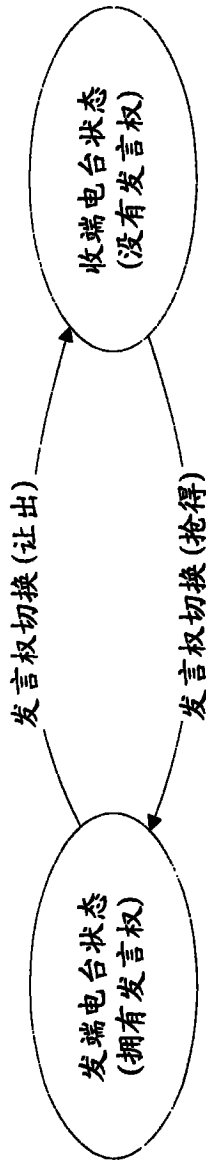 发端电台状态
(拥有发言权)
发言权切换(让出)
发言权切换(抢得)
收端电台状态
(没有发言权)